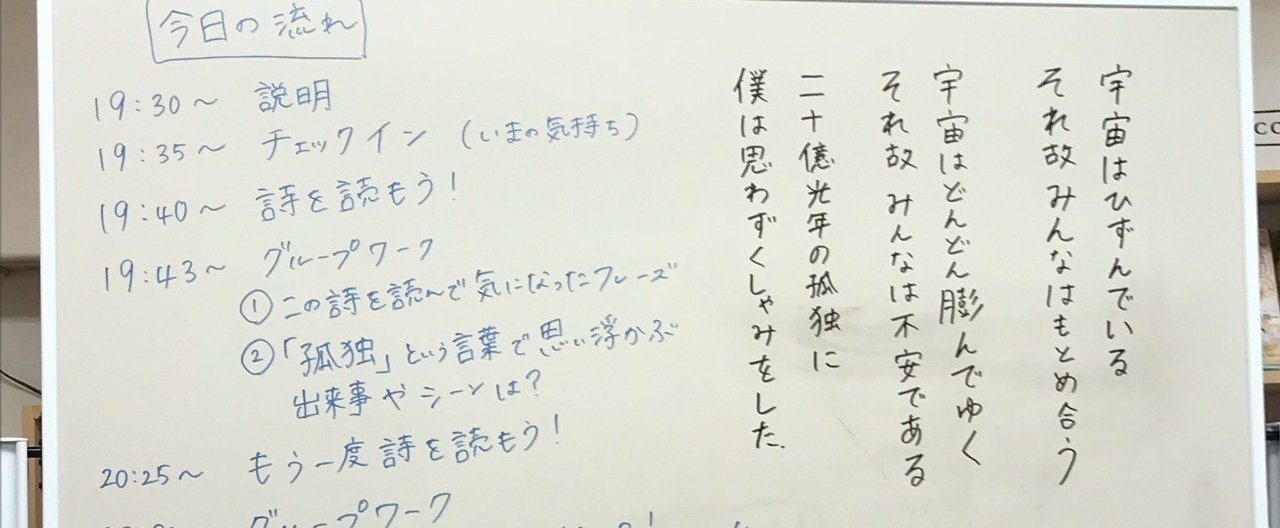 今日の流れ
19:30〜 説明
19:35〜 チェックイン (いまの気持ち)
19:40〜 詩を読もう!
19:43〜 グループワーク
① この詩を読んで気になったフレーズ
② 「孤独」という言葉で思い浮かぶ
出来事やシーンは?
20:25〜 もう一度詩を読もう!
グループワーク
宇宙はひずんでいる
それ故みんなはもとめ合う
宇宙はどんどん膨んでゆく
それ故みんなは不安である
二十億光年の孤独に
僕は思わずくしゃみをした